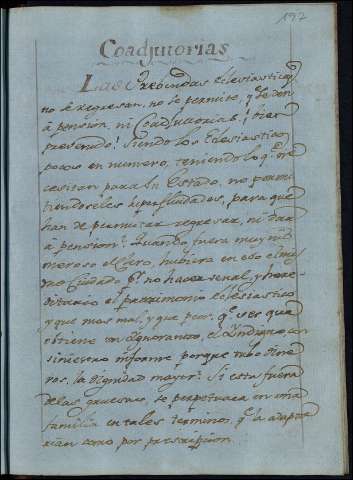 192
Coadjutorias
Las Prebendas eclesiasticas
no se regresan, no se permite, q.e se den
à pension, ni Coadjutorias! bien
prevenido! Siendo los Eclesiasticos
pocos en numero, teniendo lo q.e ne
cesitan para su Estado, no permi
tiendoseles superfluidades, para que
han de permutar, regresar, ni dar
à pension? Quando fuera muy nu
meroso el Clero, hubiera en eso el mis
mo Cuidado p.a no hacer venal, y here
ditario el patrimonio eclesiastico
y que mas mal, y que peor, q.e ver que
obtiene un Ignorante, è Indigno, con
siniestro informe porque tubo dine
ros, la dignidad mayor? Si esta fuera
de las gruesas, se perpetuara en una
familia en tales terminos, q.e la adqui
rian como por prescripcion.